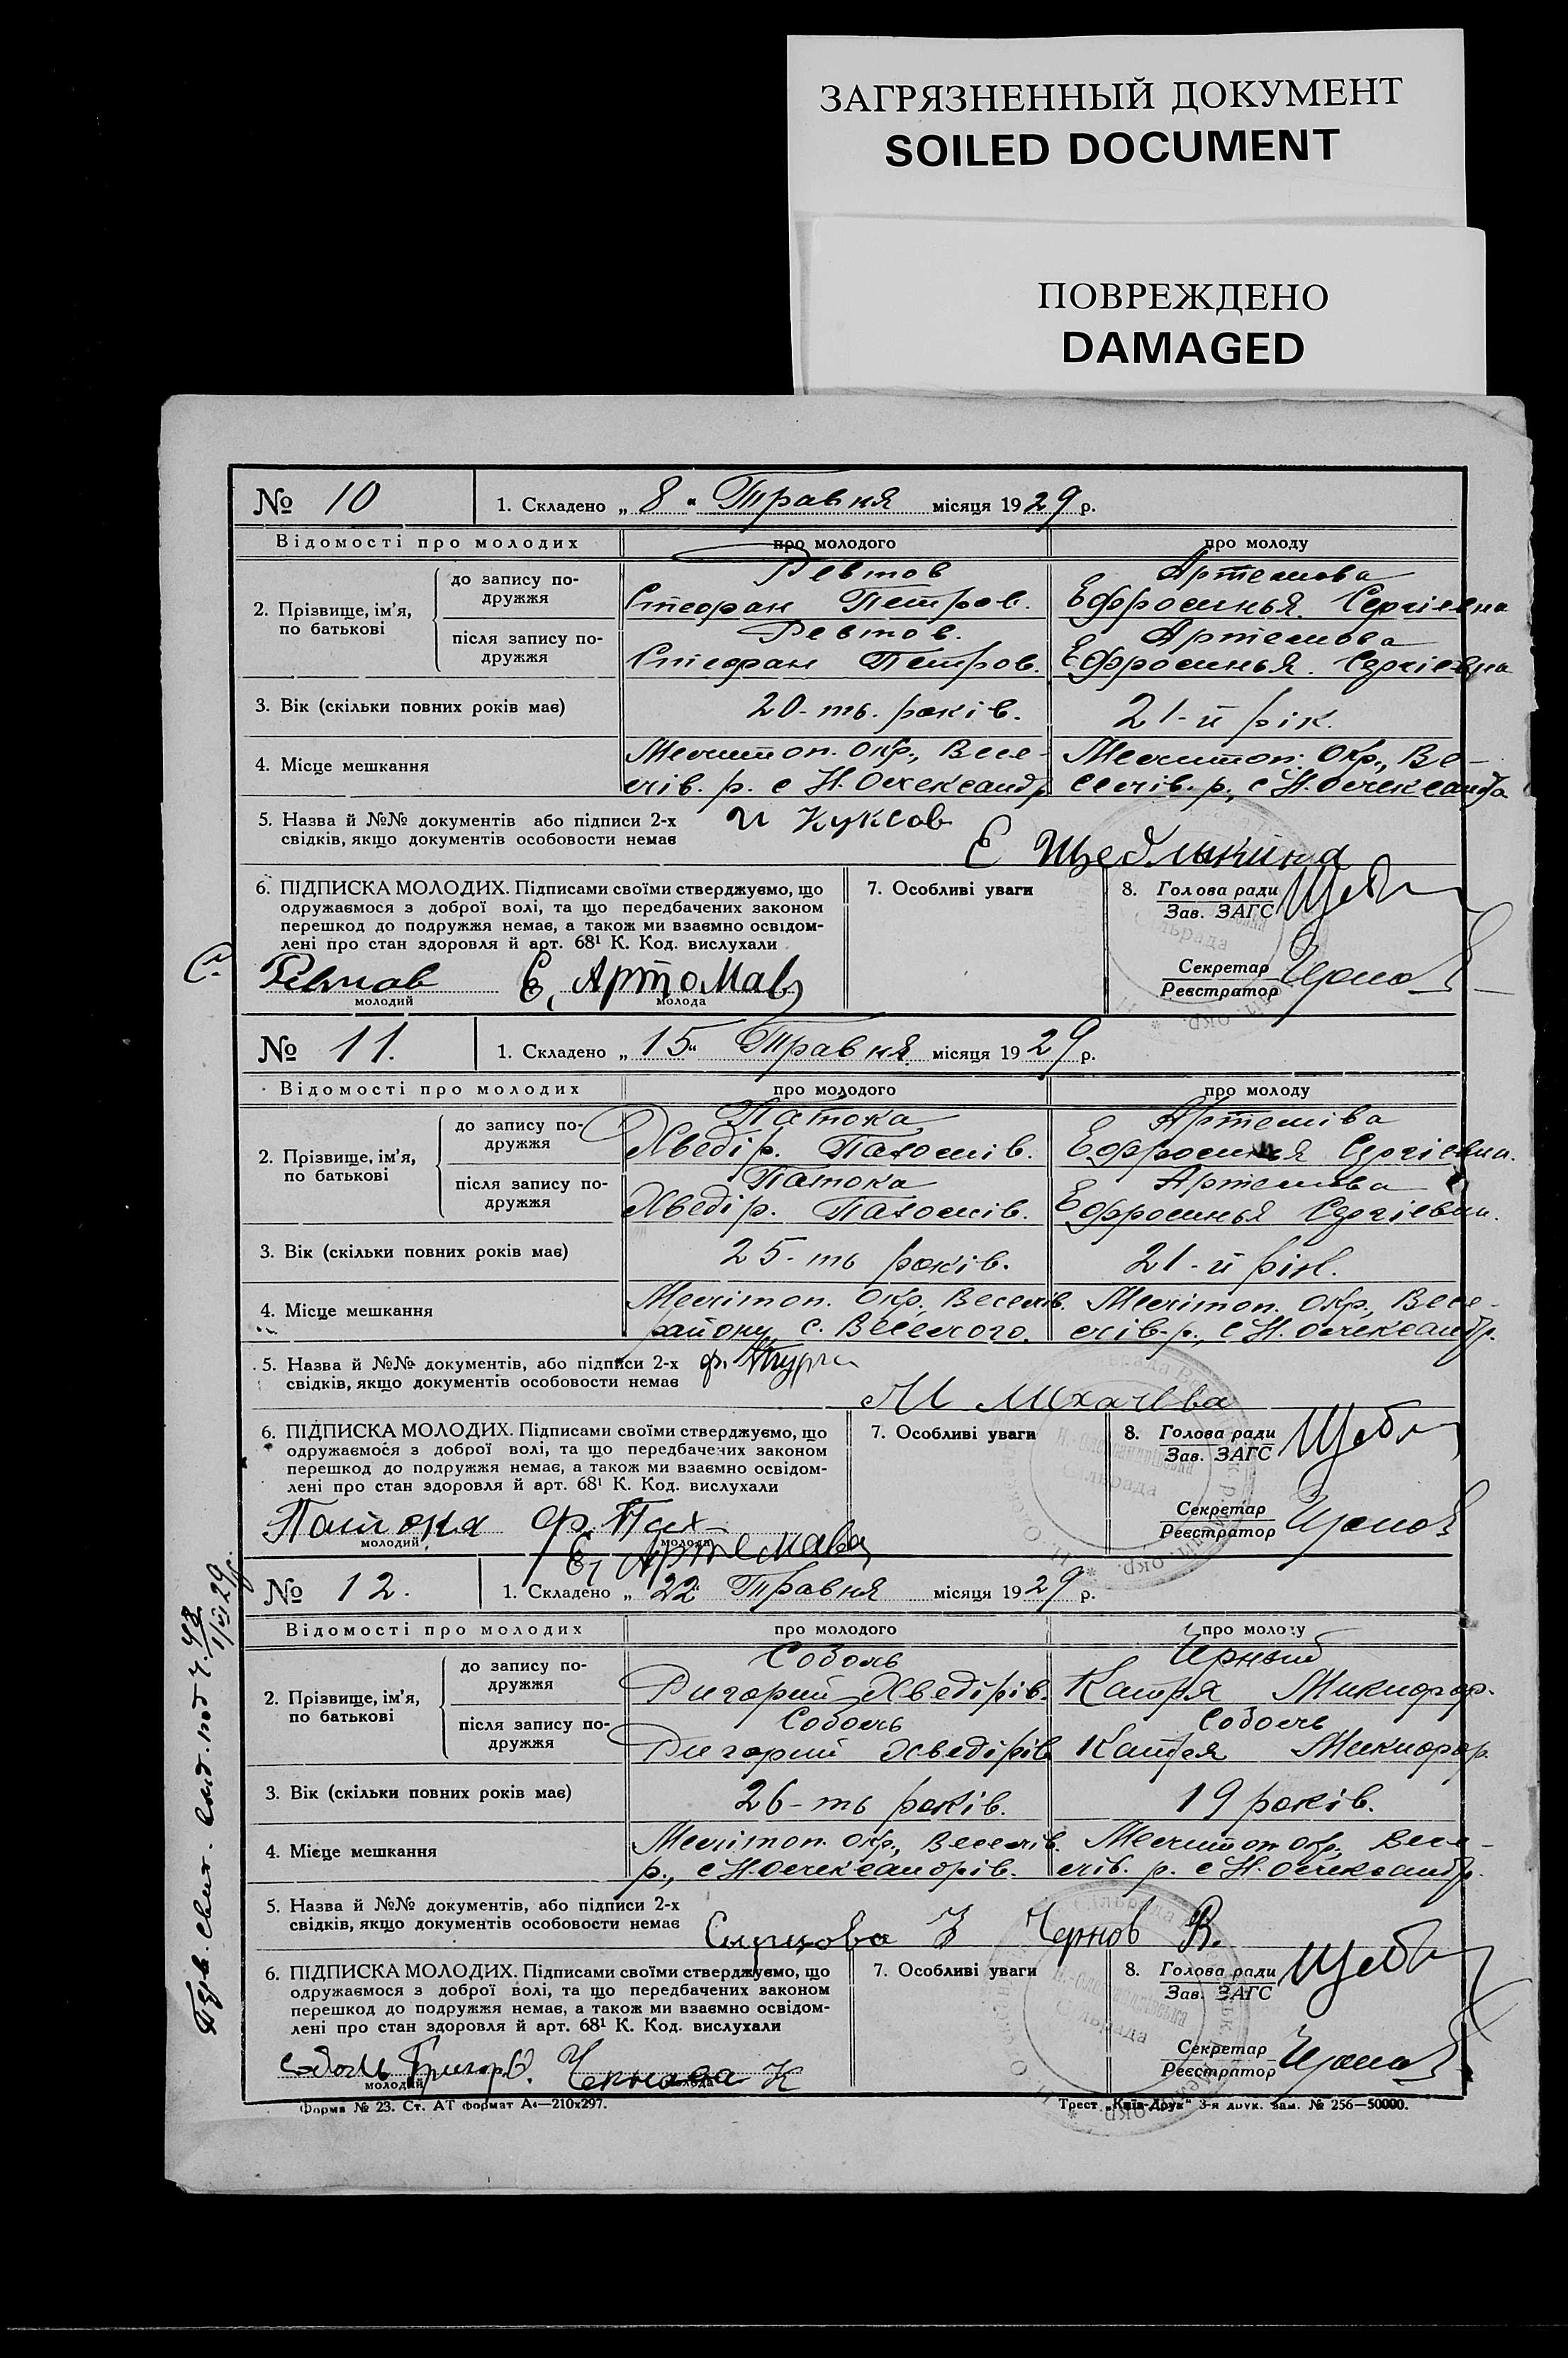 ЗАГРЯЗНЕННЫЙ ДОКУМЕНТ
SOILED DOCUMENT
ПОВРЕЖДЕНО
DAMAGED
№ 10 1. Складено „ 8 " Травня місяця 1929 р.
Відомості про молодих про молодого про молоду
2. Прізвище, ім'я, по батькові
до запису подружжя
Ревтов Артемова
Стефан Петров. Ефросинья Сергіевна
після запису подружжя
Ревтов. Артемова
Стефан Петров. Ефросинья. Сергіевна
3. Вік (скільки повних років має) 20-ть. років. 21-й рік.
4. Місце мешкання
Мелитоп. Окр., Весе- Мелитоп. Окр., Ве-
лів. р. с Н. Олександр селів. р., с Н. Олександра
5. Назва й №№ документів або підписи 2-х и Куксов
свідків, якщо документів особовости немає Е Щеблыкина
6. ПІДПИСКА МОЛОДИХ. Підписами своїми стверджуємо, що 7. Особливі уваги 8. Голова ради
одружаємося з доброї волі, та що передбачених законом Зав. ЗАГС
перешкод до подружжя немає, а також ми взаємно освідом-
лені про стан здоровля й арт. 68¹ К. Код. вислухали Секретар
Реєстратор
Ревтов Е, Артомав
молодий молода
№ 11. 1. Складено „ 15 " Травня місяця 1929 р.
Відомості про молодих про молодого про молоду
2. Прізвище, ім'я, по батькові
до запису подружжя
Патока Артемiва
Хведір. Пахомів. Ефросинья Сергіевна.
після запису подружжя
Патока Артемова
Хведір. Пахомів. Ефросинья Сергіевни.
3. Вік (скільки повних років має) 25-ть років. 21-й рік.
4. Місце мешкання
Мелітоп. Окр. Веселів. Мелітоп. Окр., Весе-
району, с. Веселого. лів. р., с Н. Олександр.
5. Назва й №№ документів, або підписи 2-х
свідків, якщо документів особовости немає
6. ПІДПИСКА МОЛОДИХ. Підписами своїми стверджуємо, що 7. Особливі уваги 8. Голова ради
одружаємося з доброї волі, та що передбачених законом Зав. ЗАГС
перешкод до подружжя немає, а також ми взаємно освідом-
лені про стан здоровля й арт. 68¹ К. Код. вислухали Секретар
Реєстратор
Патока Ф. Пах-
молодий молода
Е, Артемава
№ 12. 1. Складено „ 22 " Травня місяця 1929 р.
Відомості про молодих про молодого про молоду
2. Прізвище, ім'я, по батькові
до запису подружжя
Соболь Чорный
Григорий Хведірів. Катря Микифор.
після запису подружжя
Соболь Соболь
Григорий Хведірів Катря Микифор
3. Вік (скільки повних років має) 26-ть років. 19 років.
4. Місце мешкання
Мелітоп. Окр., Веселів. Мелитоп Окр., Весе-
р., с Н. Олександрів. лів. р. с Н. Олександр.
5. Назва й №№ документів, або підписи 2-х
свідків, якщо документів особовости немає Чернов В.
6. ПІДПИСКА МОЛОДИХ. Підписами своїми стверджуємо, що 7. Особливі уваги 8. Голова ради
одружаємося з доброї волі, та що передбачених законом Зав. ЗАГС
перешкод до подружжя немає, а також ми взаємно освідом-
лені про стан здоровля й арт. 68¹ К. Код. вислухали Секретар
Реєстратор
Соболь Григор К
молодий молода
Форма № 23. Ст. АТ формат А4—210х297. Трест „Київ-Друк" 3-я друк. Зам. № 256—50000.